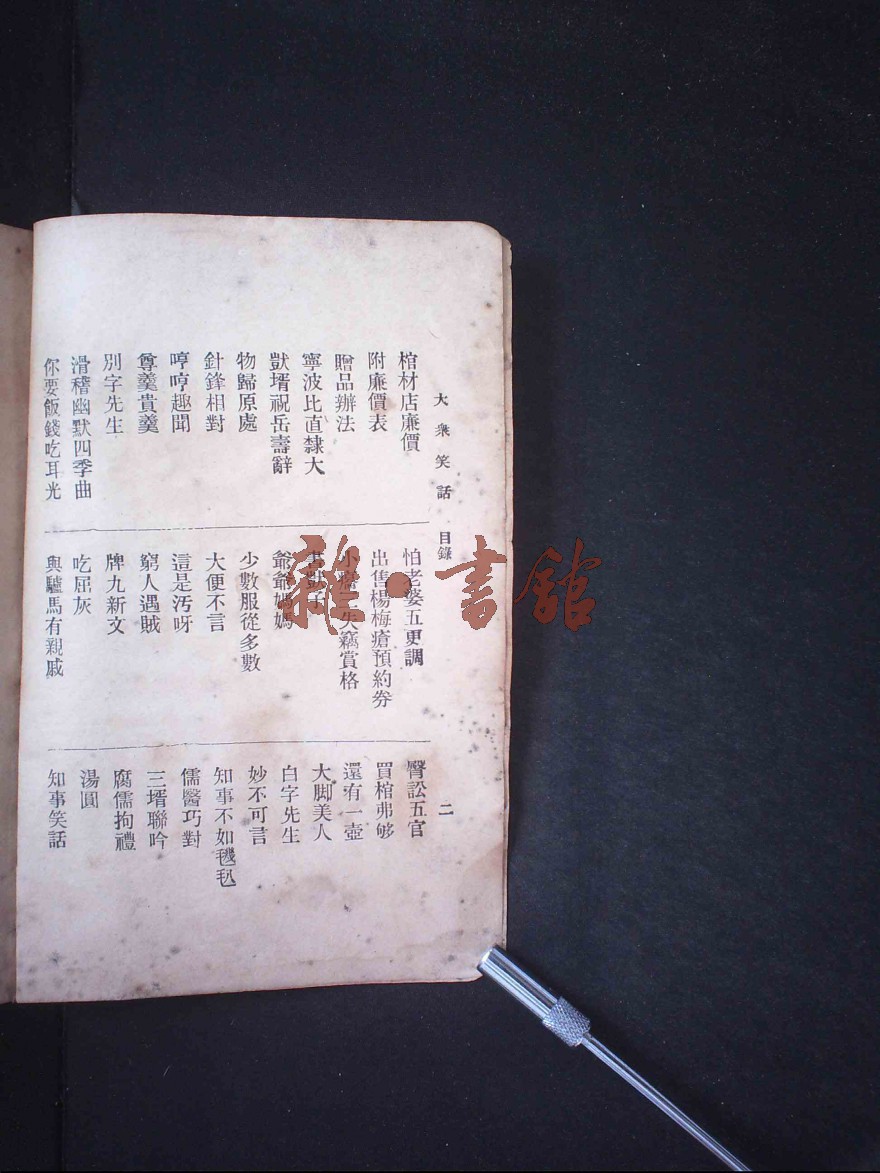 大衆笑話 目錄 二
棺材店廉價
附廉價表
贈品辦法
寧波比直隸大
獃壻祝岳壽辭
物歸原處
針鋒相對
哼哼趣聞
尊羹貴羹
別字先生
滑稽幽默四季曲
你要飯錢吃耳光
怕老婆五更調
出售楊梅瘡預約券
小 失竊賞格
書獃子
爺爺媽媽
少數服從多數
大便不言
這是汚呀
窮人遇賊
牌九新文
吃屈灰
與驢馬有親戚
臀訟五官
買棺弗够
還有一壺
大脚美人
白字先生
妙不可言
知事不如
儒醫巧對
三壻聯吟
腐儒拘禮
湯圓
知事笑話
雜·書館